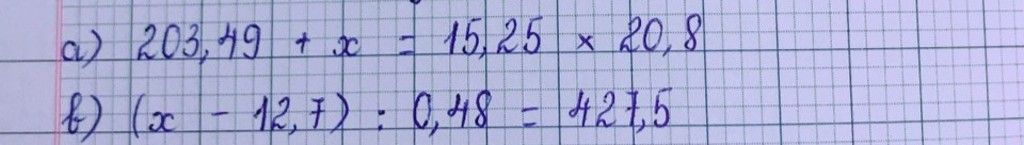 a) 203,49 + x = 15,25 × 20,8
b) (x - 12,7) : 0,48 = 427,5